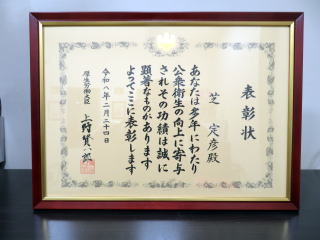 表彰状
芝 定彦殿
あなたは多年にわたり
公衆衛生の向上に寄与
されその功績は誠に
顕著なものがあります
よってここに表彰します
令和八年二月二十四日
厚生労働大臣
上野賢一郎